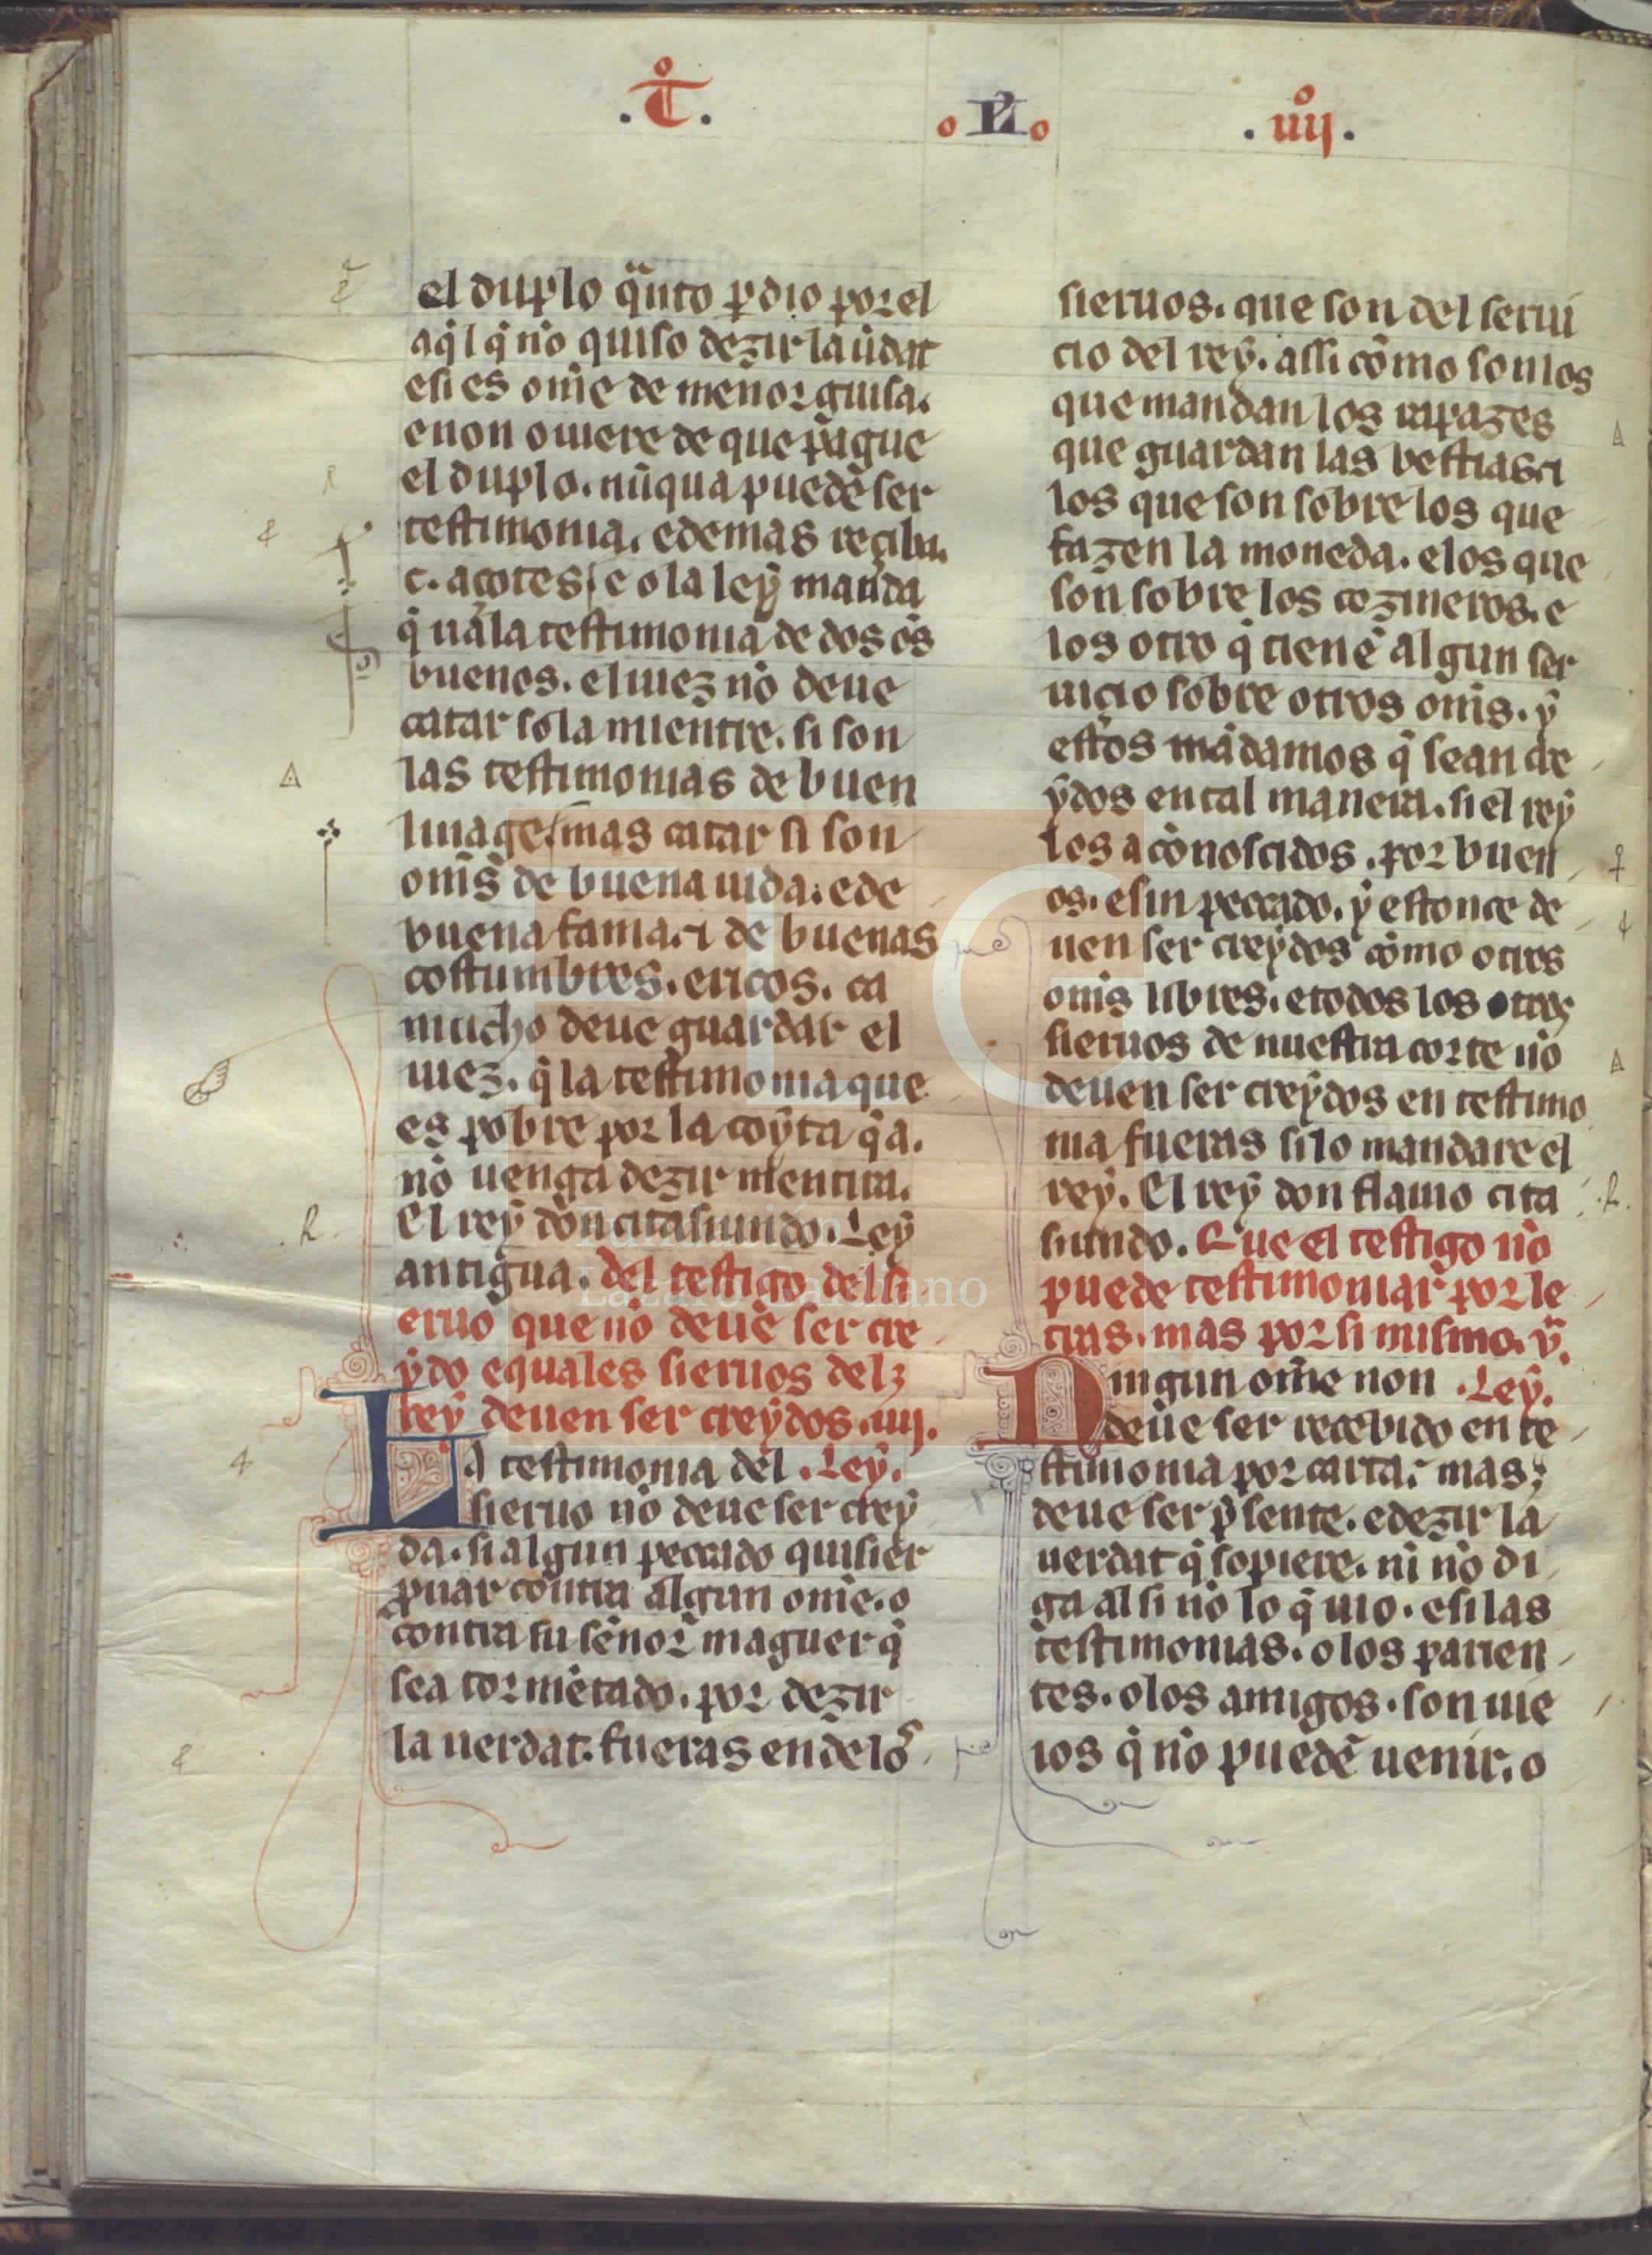 .T̊. .II. .iiij̊.
el duplo q̃nto ꝑdio por el
aq̃l q̃ no quiso dezir la ũdat
e si es ome de menor guisa.
e non ouiere de que pague
el duplo. nũqua puede ser
testimonia. e demas reçiba.
c. açotes e o la ley manda
q̃ uala testimonia de dos oẽs
buenos. el iuez no deue
catar sola mientre. si son
las testimonias de buen
linage. mas catar si son
om̃s de buena uida. e de
buena fama. ⁊ de buenas
costumbres. e ricos. ca
mucho deue guardar el
iuez. q̃ la testimonia que
es pobre por la coyta q̃ a.
no uenga dezir mentira.
El rey don citasiundo. Ley
antigua. del testigo del si
eruo que no deue ser cre
ydo e quales sieruos del
rey deuen ser creydos. iiij.
La testimonia del .Ley.
sieruo no deue ser crey
da. si algun peccado quisier
prouar contra algun ome. o
contra su señor maguer q̃
sea tormẽtado. por dezir
la uerdat. fueras ende los
sieruos. que son del serui
cio del rey. assi como son los
que mandan los rapazes
que guardan las bestias ⁊
los que son sobre los que
fazen la moneda. e los que
son sobre los cozineros. e
los otro q̃ tienẽ algun ser
uicio sobre otros om̃s. y
estos mãdamos q̃ sean cre
ydos en tal manera. si el rey
los a conoscidos. por buen
os. e sin peccado. y estonce de
uen ser creydos como otros
om̃s libres. e todos los otros
sieruos de nuestra corte no
deuen ser creydos en testimo
nia fueras si lo mandare el
rey. El rey don flauio cita
siundo. Que el testigo no
puede testimoniar por le
tras. mas por si mismo. v.
Ningun ome non .Ley.
deue ser recebido en te
stimonia por carta. mas
deue ser p̃sente. e dezir la
uerdat q̃ sopiere. ni no di
ga al si no lo q̃ uio. e si las
testimonias. o los parien
tes. o los amigos. son uie
ios q̃ no puedẽ uenir. o